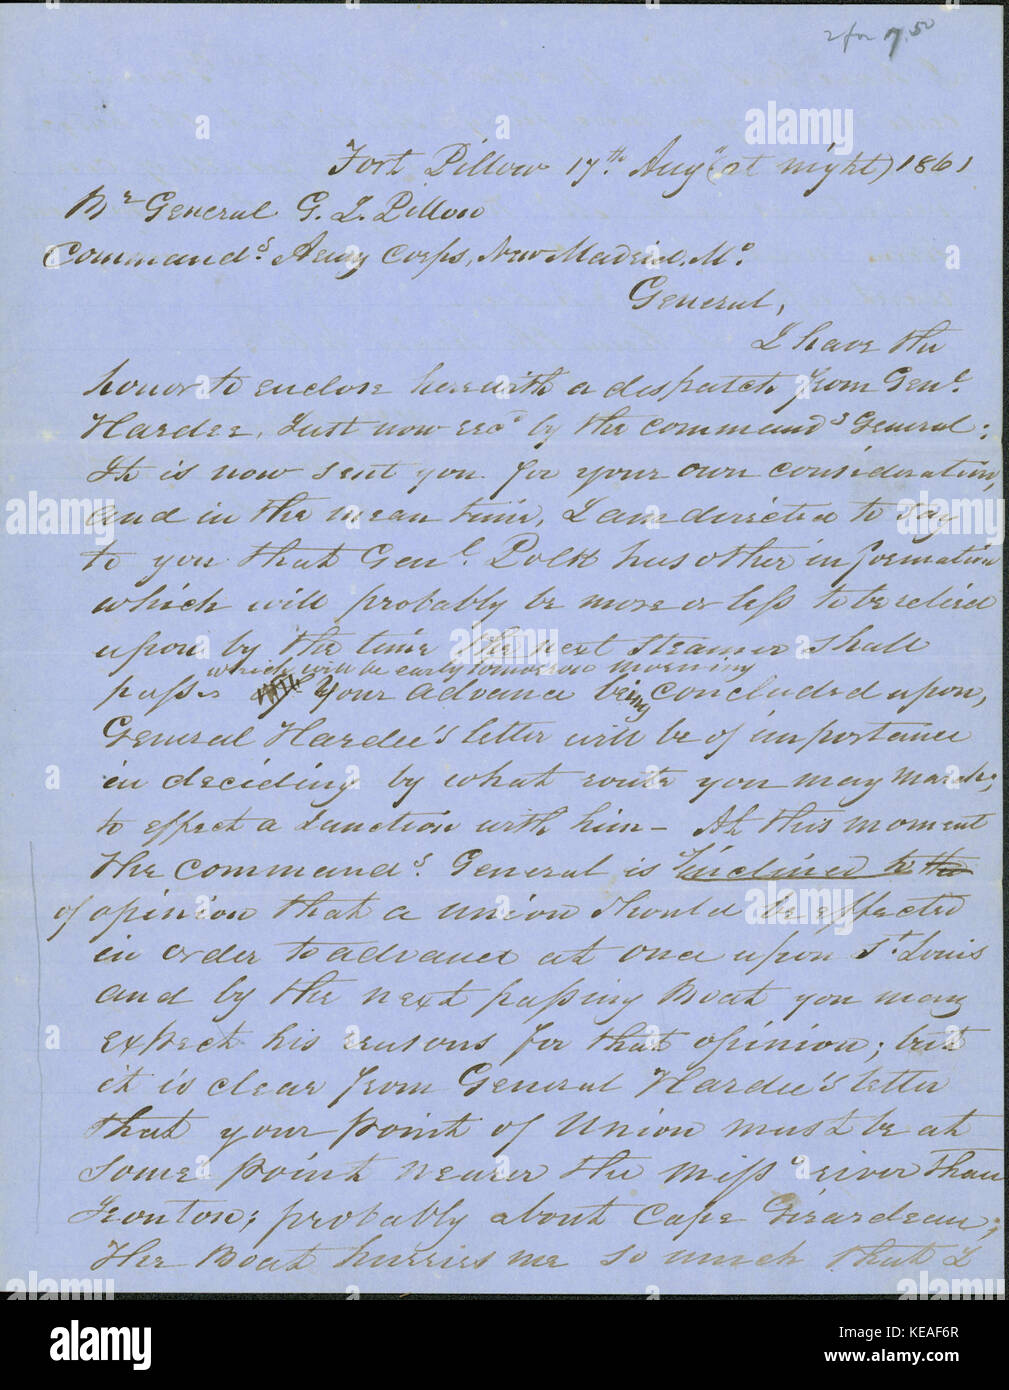 2 for 7.50
Fort Pillow 17th Augt (at night) 1861
Br General G. J. Pillow
Commandg Army Corps, New Madrid. Mo.
General,
I have the
honor to enclose herewith a dispatch from Genl.
Hardee, Just now recd by the commandg General:
It is now sent you for your own consideration,
and in the mean time, I am directed to say
to you that Genl. Polk has other information
which will probably be more or less to be relied
upon by the time the next steamer shall
which will be early tomorrow morning
pass. Your advance being concluded upon,
General Hardee's letter will be of importance
in deciding by what route you may march;
to effect a Junction with him - At this moment
the commandg. General is inclined to the
of opinion that a union should be effected
in order to advance at once upon St. Louis
and by the next passing Boat you may
expect his reasons for that opinion; but
it is clear from General Hardee's letter
that your point of Union must be at
some point nearer the Miss. river than
Ironton; probably about Cape Girardeau;
The Boat hurries me so much that I
alamy
alamy stock photo
KEAF6R
www.alamy.com